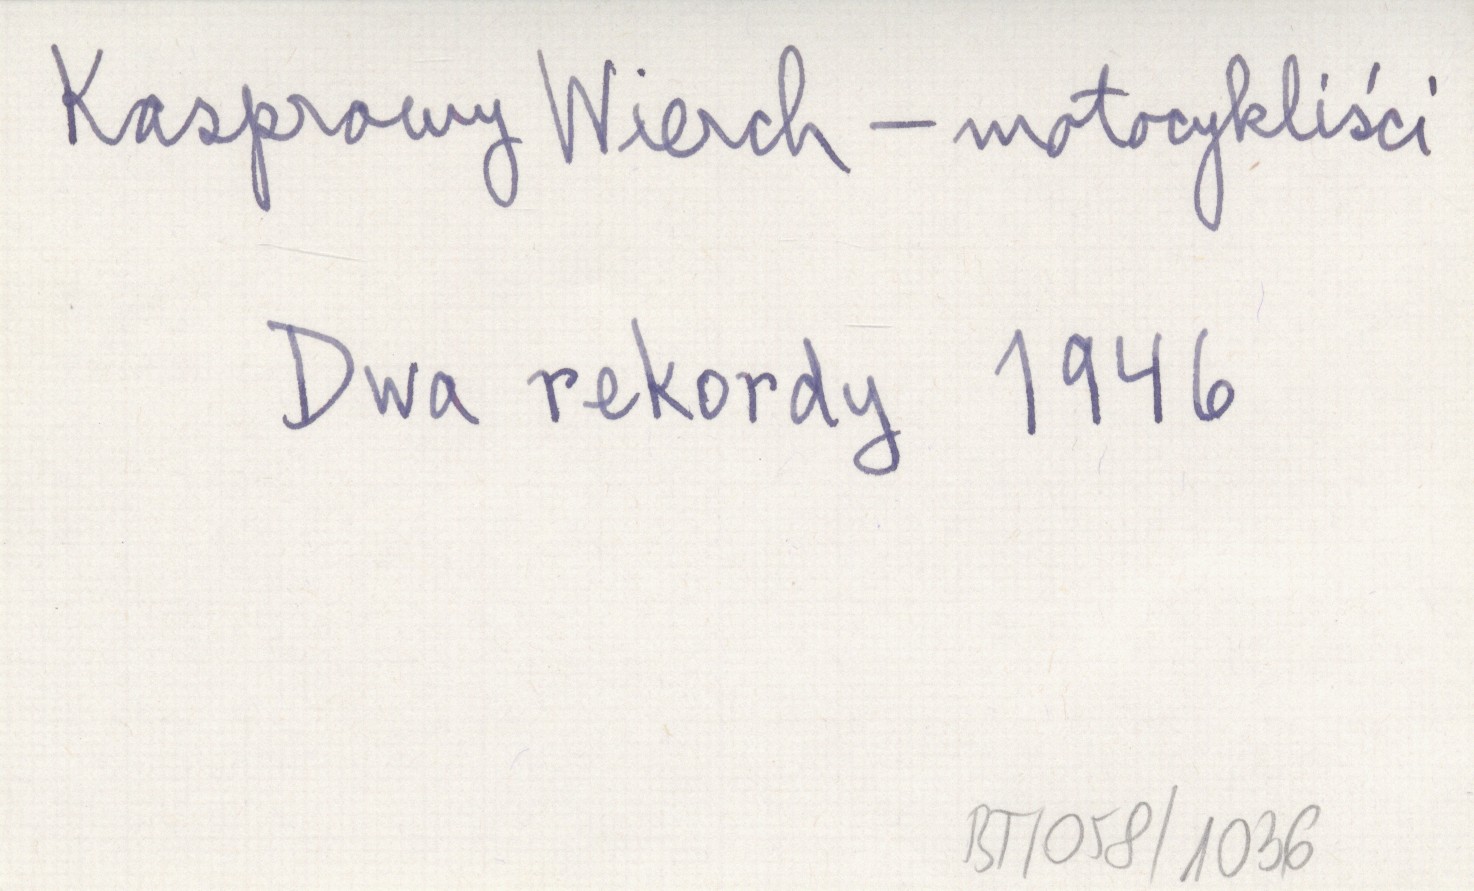 Kasprowy Wierch – motocykliści
Dwa rekordy 1946
BT/058/1036